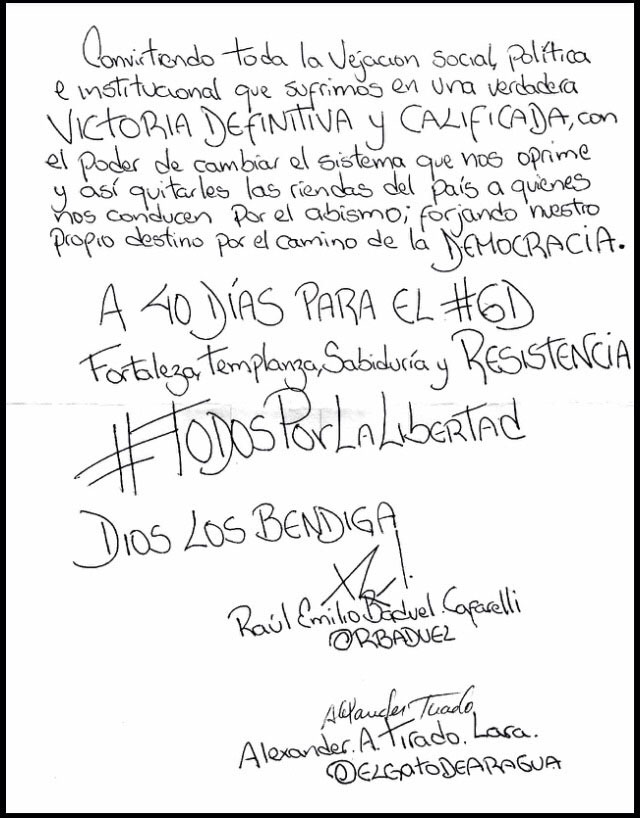 Convirtiendo toda la Vejacion social, política
e institucional que sufrimos en una verdadera
VICTORIA DEFINITIVA y CALIFICADA, con
el poder de cambiar el sistema que nos oprime
y así quitarles las riendas del país a quienes
nos conducen por el abismo; forjando nuestro
propio destino por el camino de la DEMOCRACIA.
A 40 DÍAS PARA EL #6D
Fortaleza, Templanza, Sabiduría y RESISTENCIA
#TODOSPorLaLiBERTAd
DIOS LOS BENDIGA
Raúl Emilio Baduel. Cafarelli
@RBADUEL
Alexander Tirado
Alexander. A. Tirado. Lara.
@ELGatoDEARAGUA